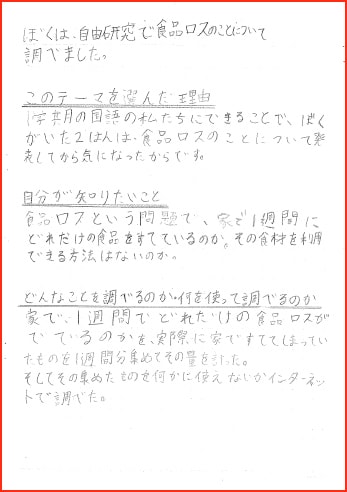 ぼくは、自由研究で食品ロスのことについて
調べました。
このテーマを選んだ理由
1学期の国語の私たちにできることで、ぼく
がいた2はんは、食品ロスのことについて発
表してから気になったからです。
自分が知りたいこと
食品ロスという問題で、家で1週間に
どれだけの食品をすてているのか。その食材を利用
できる方法はないのか。
どんなことを調べるのか・何を使って調べるのか
家で、1週間でどれだけの食品ロスが
でているのかを、実際に家ですててしまってい
たものを1週間分集めてその量を計った。
そしてその集めたものを何かに使えないかインターネッ
トで調べた。